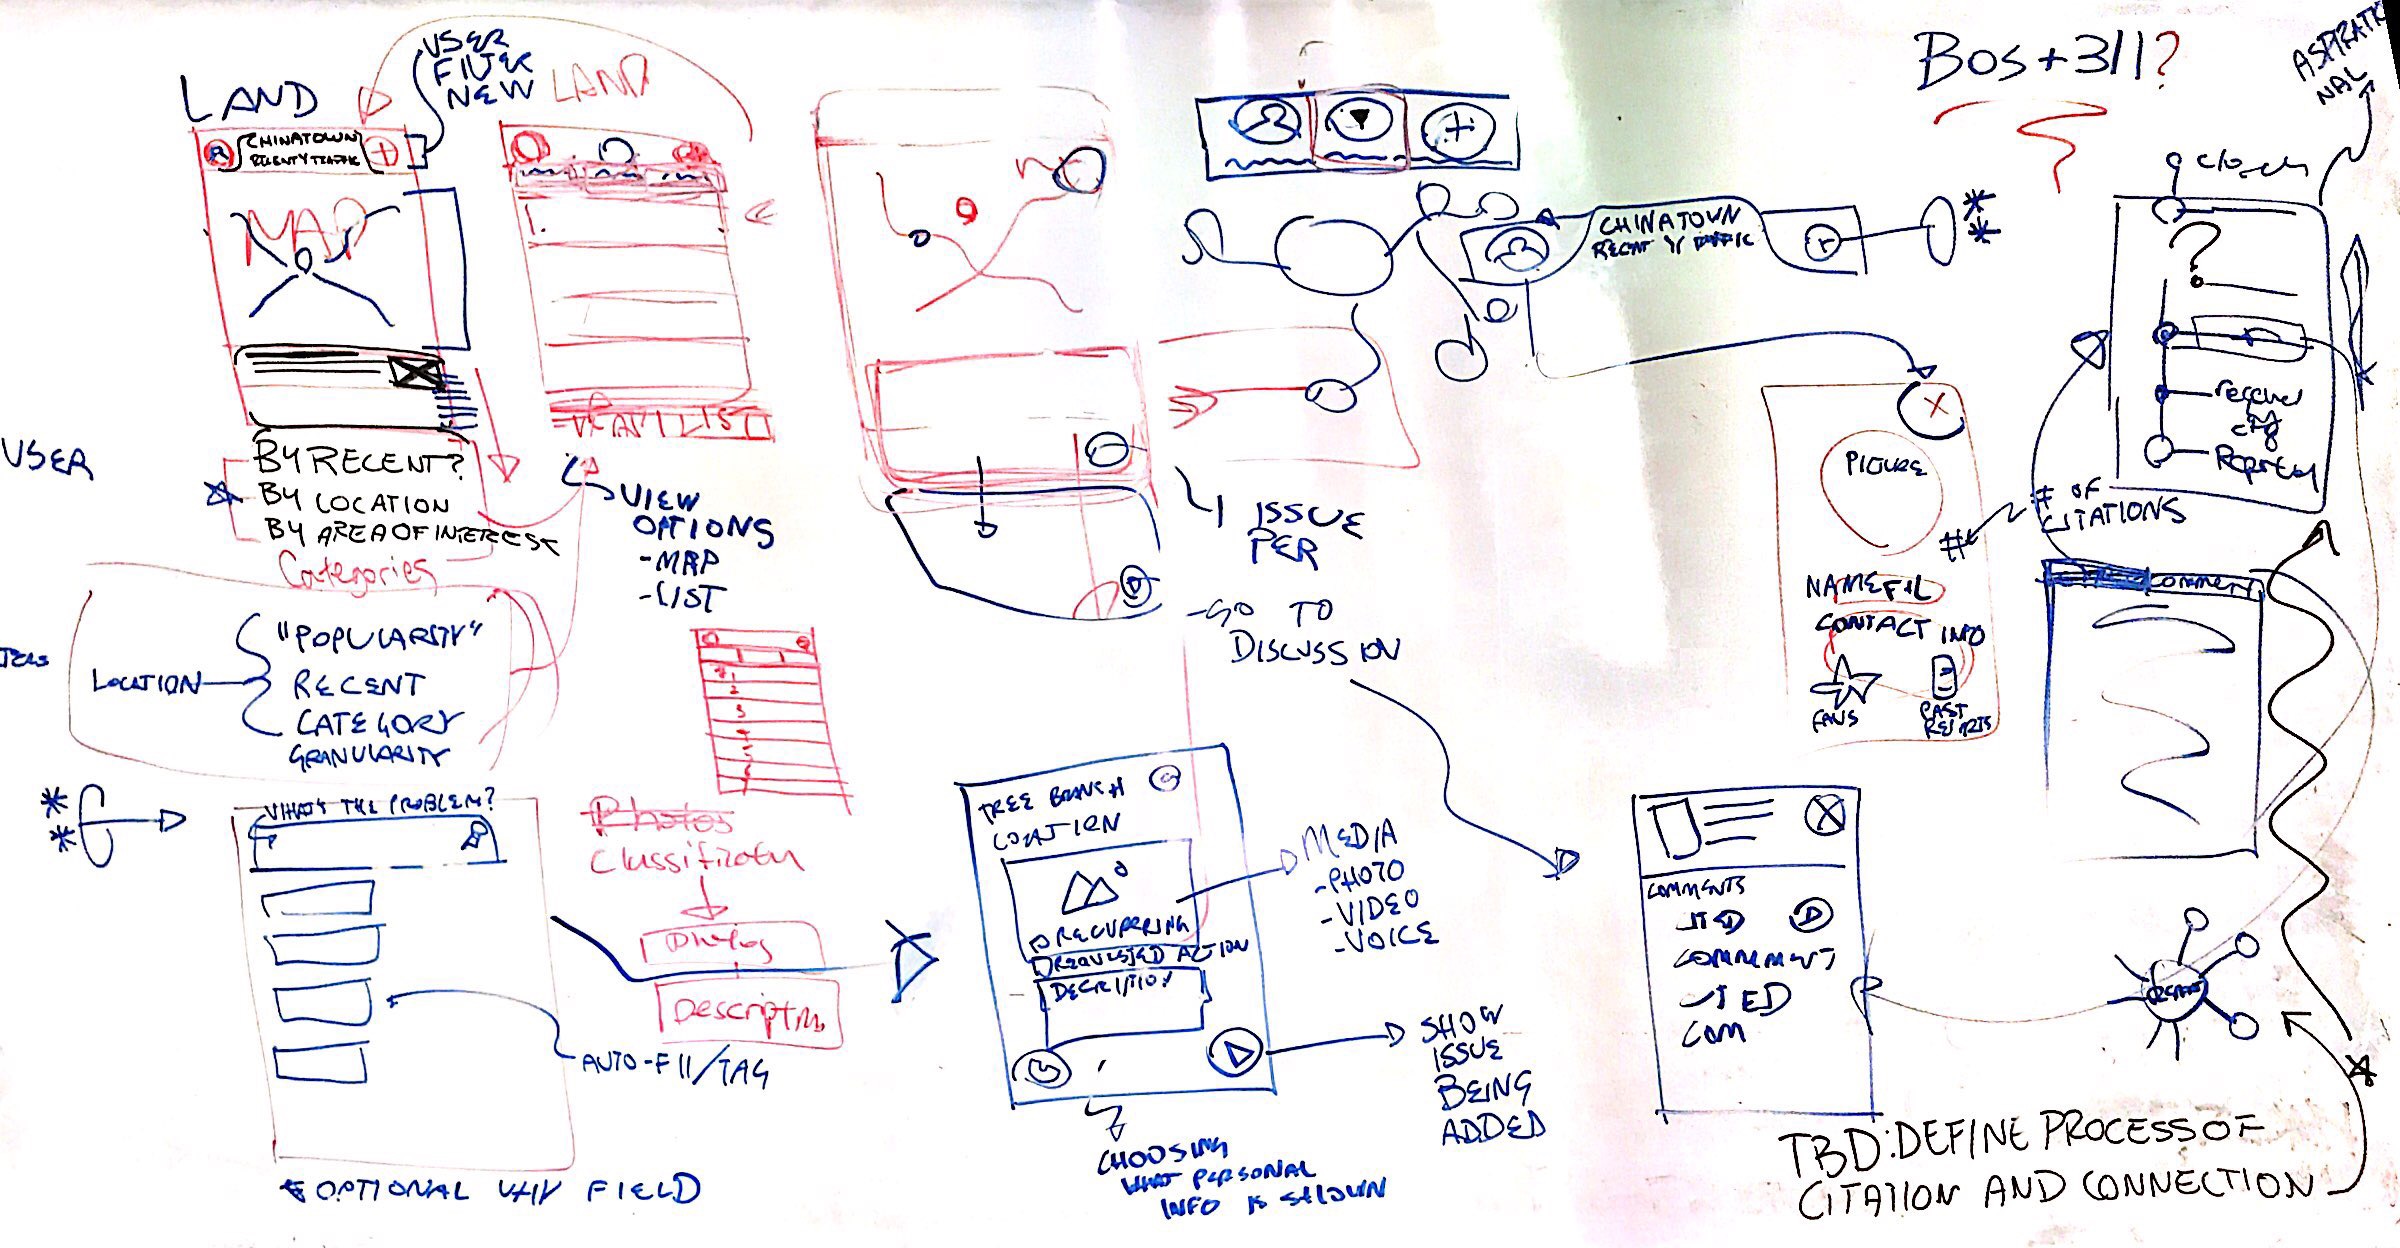 LAND
USER
FILTER
NEW
LAND
CHINATOWN
MAP
1.
USER
BY RECENT?
BY LOCATION
BY AREA OF INTEREST
Categories
VIEW
OPTIONS
- MAP
- LIST
LOCATION
"POPULARITY"
RECENT
CATEGORY
GRANULARITY
1
2
3
4
5
6
**
WHAT'S THE PROBLEM?
AUTO-FILL/TAG
OPTIONAL WHY FIELD
Photos
Classification
Photos
Description
TREE BRANCH
LOCATION
RECURRING
REQUESTED ACTION
DECRIPTION
MEDIA
- PHOTO
- VIDEO
- VOICE
SHOW
ISSUE
BEING
ADDED
CHOOSING
WHAT PERSONAL
INFO IS SHOWN
1 ISSUE
PER
- GO TO
DISCUSSION
CHINATOWN
**
BOS+311?
ASPIRATIO
NAL
closed
?
received
ctg
Reported
# OF
CITATIONS
#
X
PICTURE
NAME F+L
CONTACT INFO
FAVS
PAST
REPORTS
COMMENT
COMMENTS
CITED
COMMMENT
CITED
COM
TBD: DEFINE PROCESS OF
CITATION AND CONNECTION